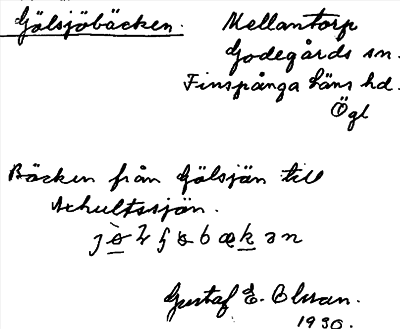 Gölsjöbäcken.
Mellantorp
Godegårds sn.
Finspånga läns hd.
Ögl
Bäcken från Gölsjön till
Skultssjön.
Gustaf E. Olsson.
1930.